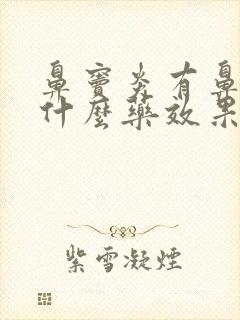 鼻竇炎有鼻
什麼藥效果
紫雪凝煙